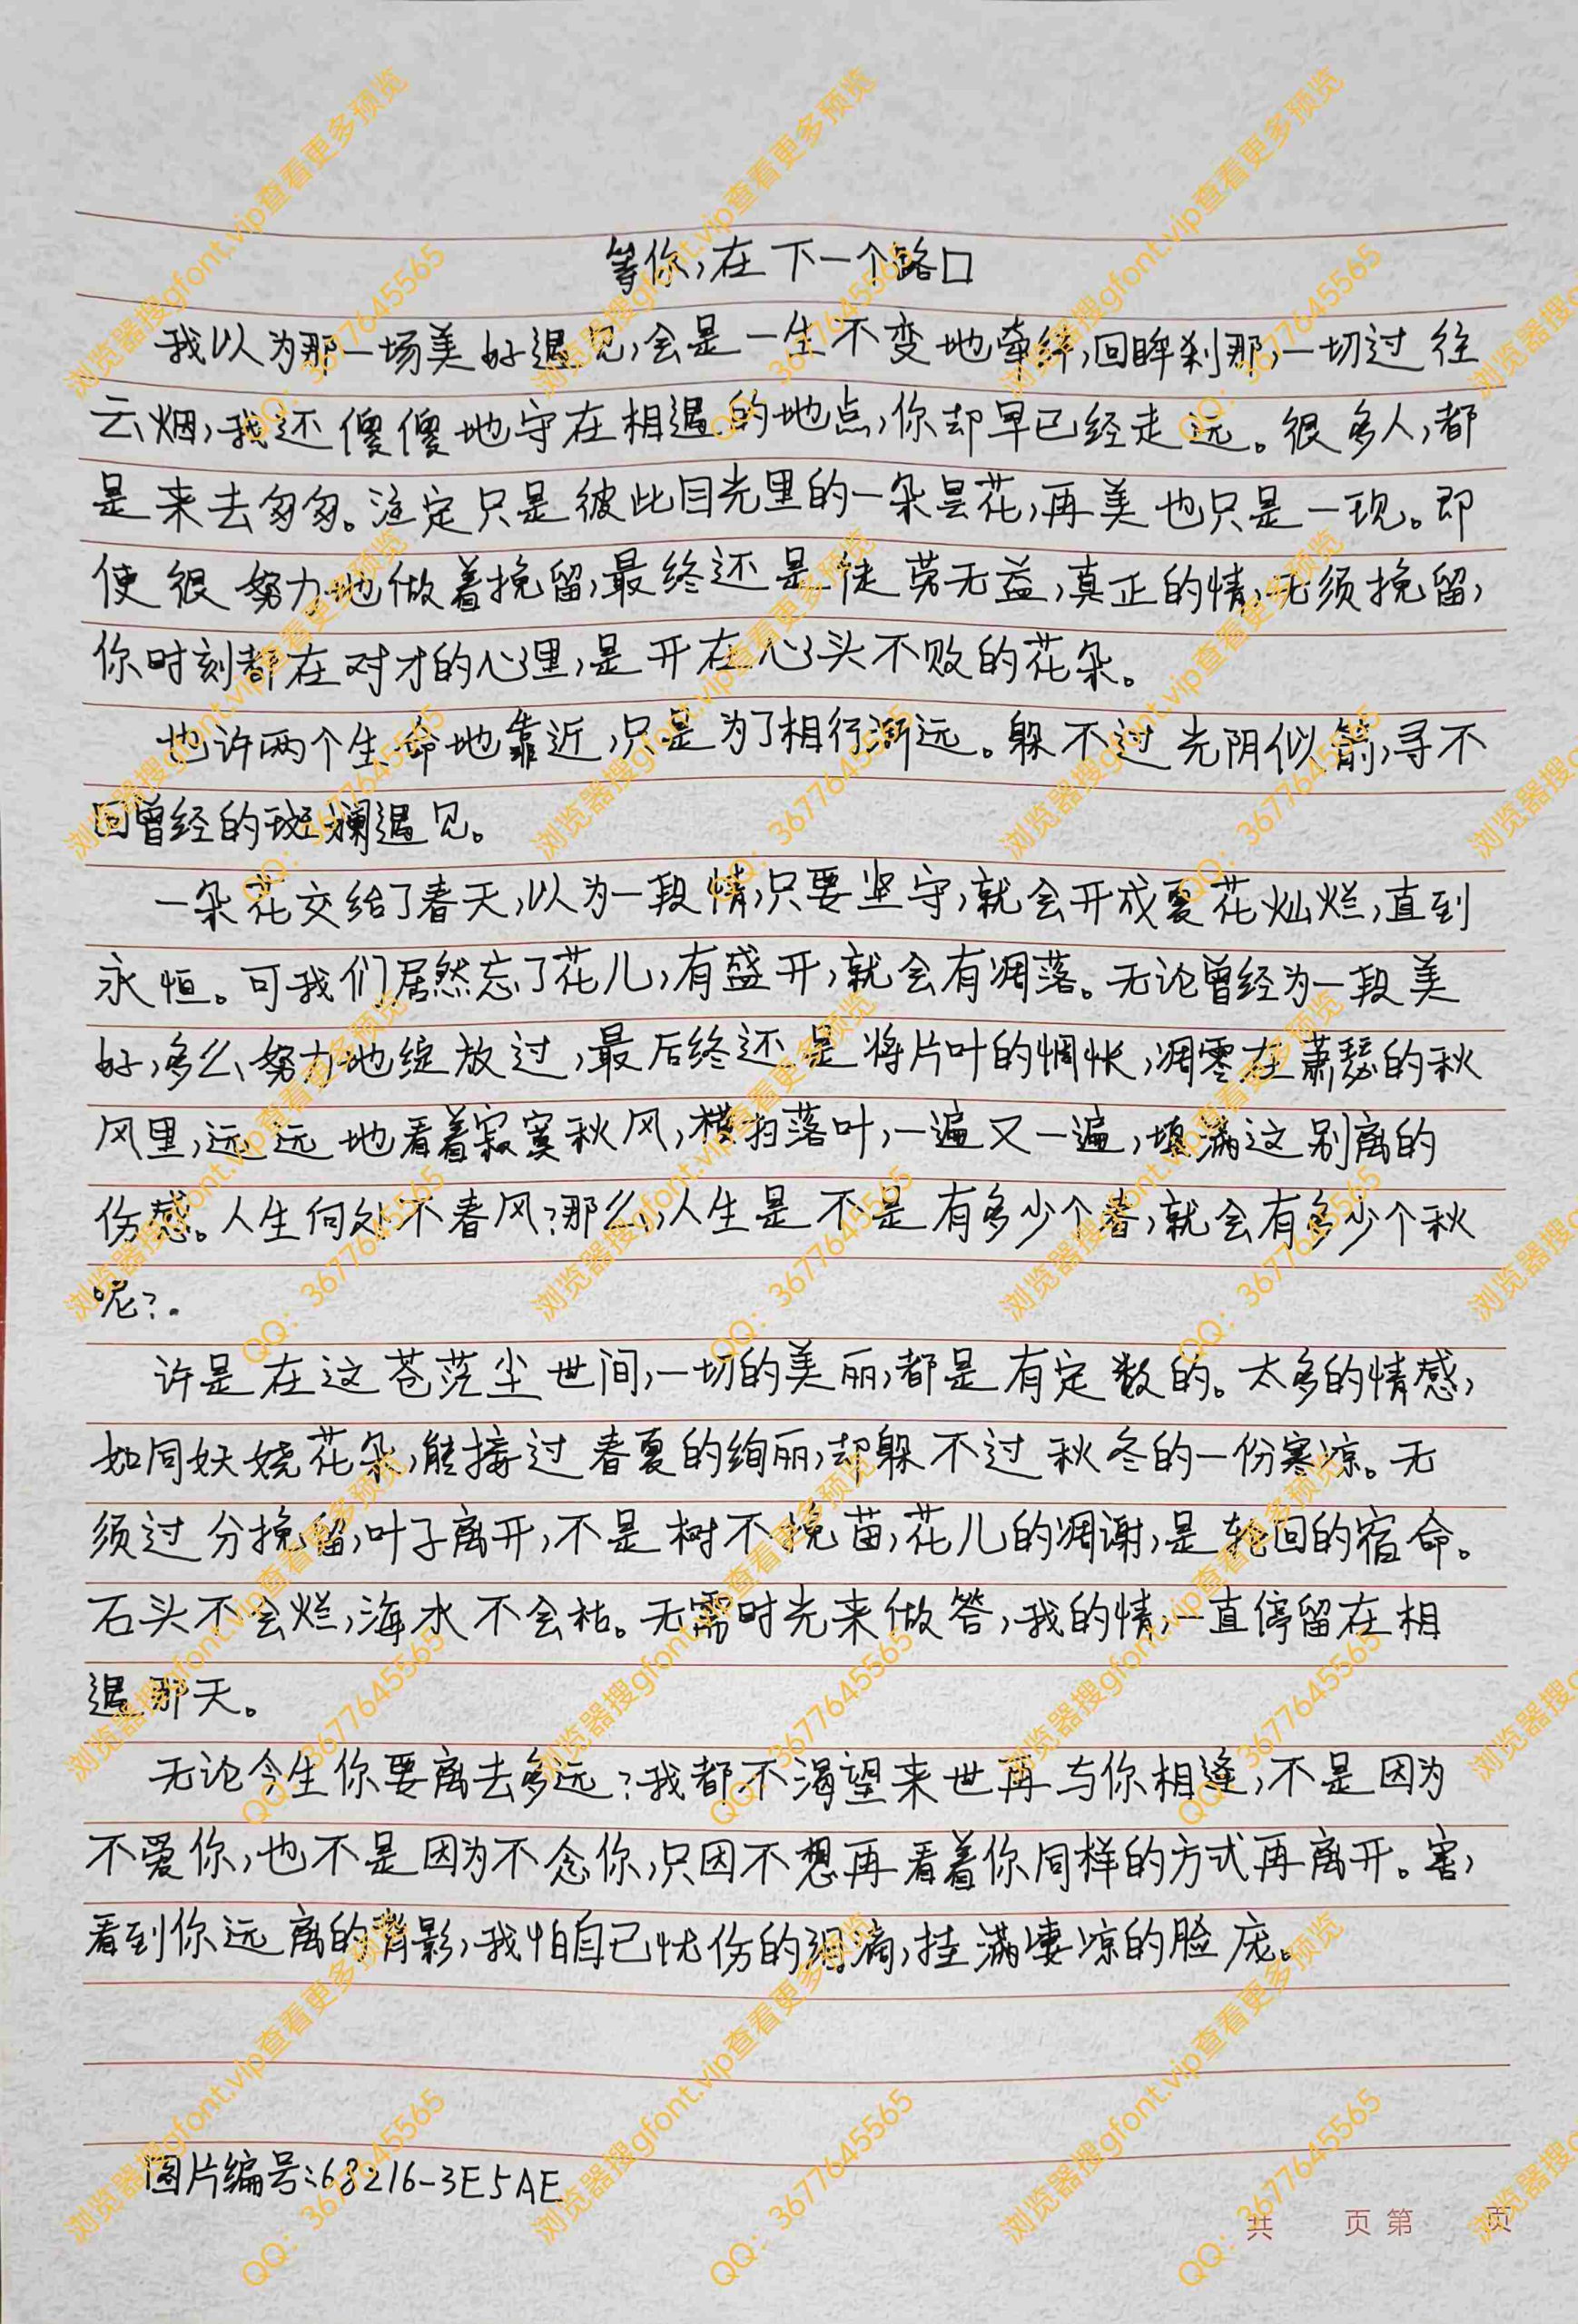 等你,在下一个路口
我以为那一场美好遇见,会是一生不变地牵绊,回眸刹那,一切过往
云烟,我还傻傻地守在相遇的地点,你却早已经走远。很多人,都
是来去匆匆。注定只是彼此目光里的一朵昙花,再美也只是一现。即
使很努力地做着挽留,最终还是徒劳无益,真正的情,无须挽留,
你时刻都在对才的心里,是开在心头不败的花朵。
也许两个生命地靠近,只是为了相行渐远。躲不过光阴似箭,寻不
回曾经的斑斓遇见。
一朵花交给了春天,以为一段情,只要坚守,就会开成夏花灿烂,直到
永恒。可我们居然忘了花儿,有盛开,就会有凋落。无论曾经为一段美
好,多么努力地绽放过,最后终还是将片叶的惆怅,凋零在萧瑟的秋
风里,远远地看着寂寞秋风,横扫落叶,一遍又一遍,填满这别离的
伤感。人生何处不春风?那么,人生是不是有多少个春,就会有多少个秋
呢?.
许是在这苍茫尘世间,一切的美丽,都是有定数的。太多的情感,
如同妖娆花朵,能接过春夏的绚丽,却躲不过秋冬的一份寒凉。无
须过分挽留,叶子离开,不是树不挽苗,花儿的凋谢,是轮回的宿命。
石头不会烂,海水不会枯。无需时光来做答,我的情,一直停留在相
遇那天。
无论今生你要离去多远?我都不渴望来世再与你相逢,不是因为
不爱你,也不是因为不念你,只因不想再看着你同样的方式再离开。害,
看到你远离的背影,我怕自己忧伤的泪滴,挂满凄凉的脸庞。
图片编号:68216-3E5AE
共 页 第 页
浏览器搜gfont.vip查看更多预览
QQ: 3677645565